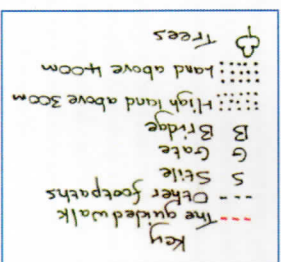 Key
The guided walk
Other footpaths
S Stile
G Gate
B Bridge
High land above 300m
Land above 400m
Trees